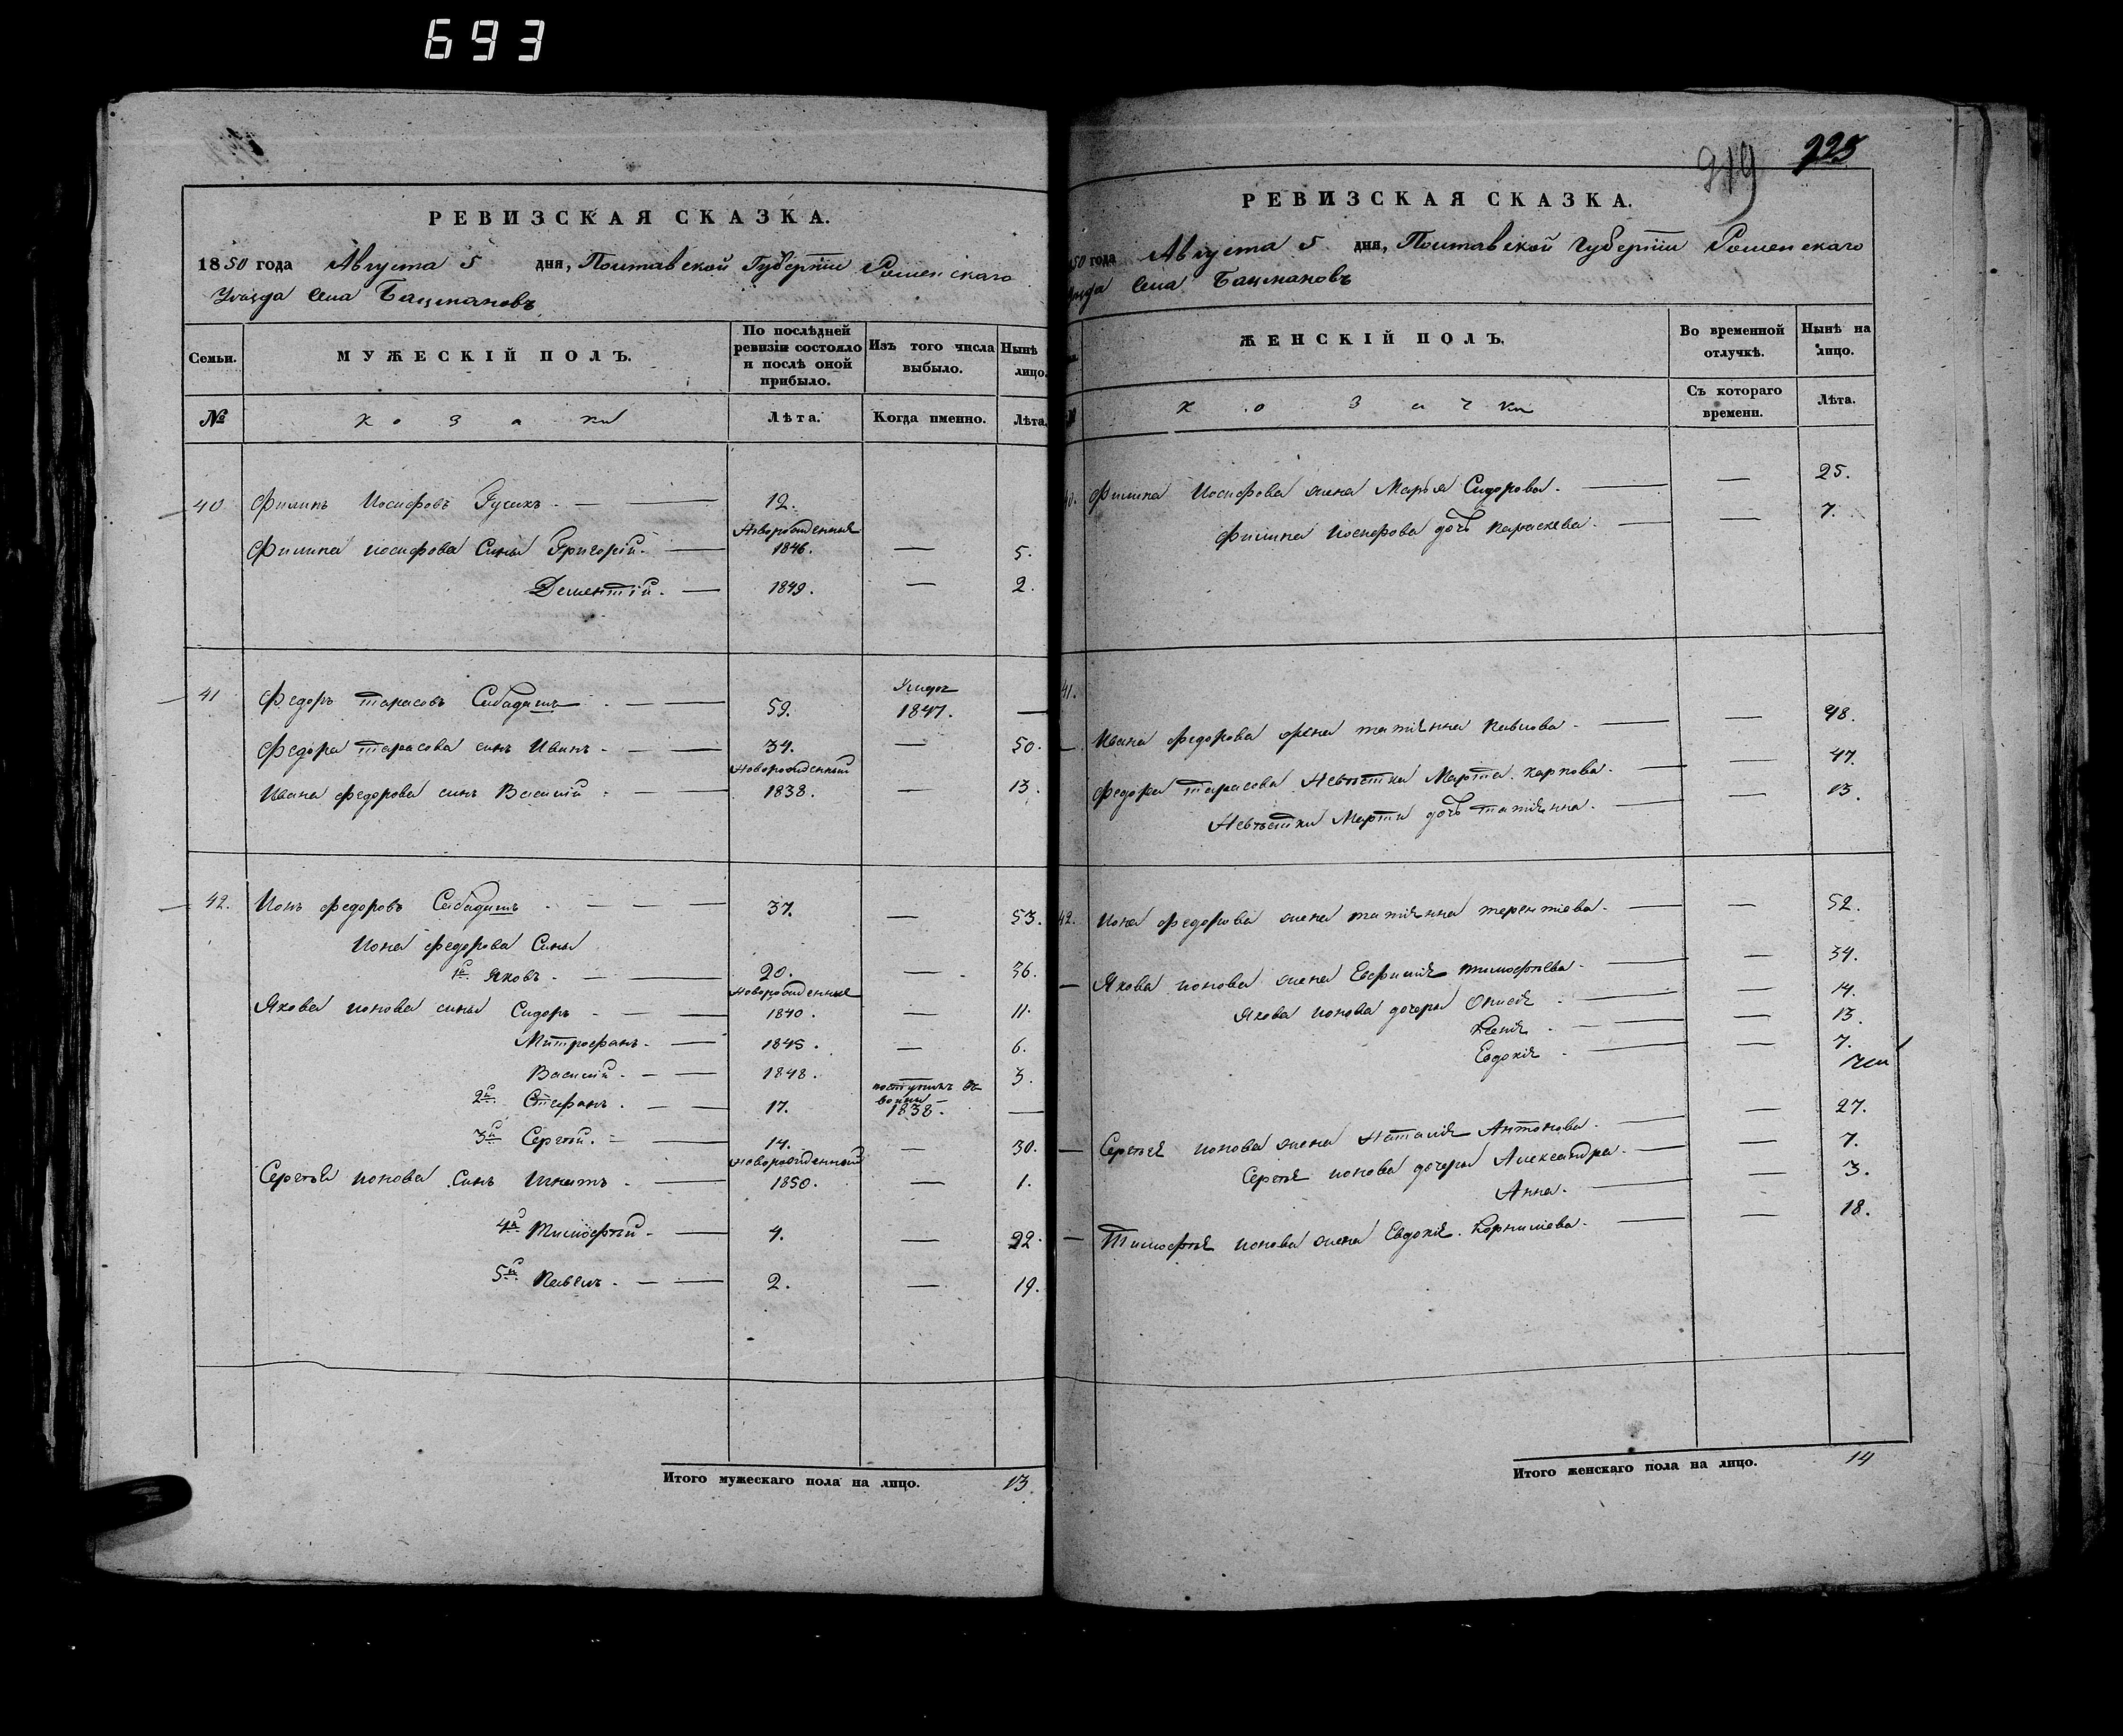 693
РЕВИЗСКАЯ СКАЗКА.
1850 года Августа 5 дня, Полтавской Губернiи Роменскаго
Уѣзда Села Бацмановъ
Семьи. МУЖЕСКІЙ ПОЛЪ. По послѣдней ревизіи состояло и послѣ оной прибыло. Изъ того числа выбыло. Нынѣ лицо.
№ козаки Лѣта. Когда именно. Лѣта.
40 Филипъ Иосифовъ Гусакъ 12.
Новорожденные
Филипа иосифова Сины Григорiй. 1846. — 5.
Дементiй. 1849. — 2.
41 Федоръ тарасовъ Сабадашъ 59. 1847. —
Федора тарасова синъ Иванъ 34. — 50.
Новорожденный
Ивана федорова синъ Василiй 1838. — 13.
42. Ионъ федоровъ Сабадашъ 37. — 53.
Иона федорова Сины
1й Яковъ 20. — 36.
Новорожденные
Якова ионова сины Сидоръ 1840. — 11.
Митрофанъ 1845. — 6.
Василiй 1848. — 3.
2й Стефанъ 17. поступилъ въ 1838. —
3й Сергѣй 14. — 30.
новорожденный
Сергѣя ионова синъ Игнатъ 1850. — 1.
4й Тимофѣй 4. — 22.
5й Павелъ 2. — 19.
Итого мужескаго пола на лицо. 13
219 225
РЕВИЗСКАЯ СКАЗКА.
50 года Августа 5 дня, Полтавской Губернiи Роменскаго
Села Бацмановъ
ЖЕНСКІЙ ПОЛЪ. Во временной отлучкѣ. Нынѣ на лицо.
козачки Съ котораго времени. Лѣта.
40. Филипа Иосифова жена Марья Сидорова — 25.
Филипа иосифова дочь параскева — 7.
41.
Ивана федорова жена татiянна павлова — 48.
Федора тарасова Невѣстка Марта карпова — 47.
Невѣстки Марти дочь татiянна — 13.
42. Иона Федорова жена татiянна терентiева — 52.
Якова ионова жена Евфимiя тимофѣева — 34.
Якова ионова дочеры — 14.
Ксенiя — 13.
Евдокiя — 7.
Сергѣя ионова жена Наталiя Антонова — 27.
Сергѣя ионова дочеры Александра — 7.
Анна — 3.
Тимофѣя ионова жена Евдокiя Корнилiева — 18.
Итого женскаго пола на лицо. 14